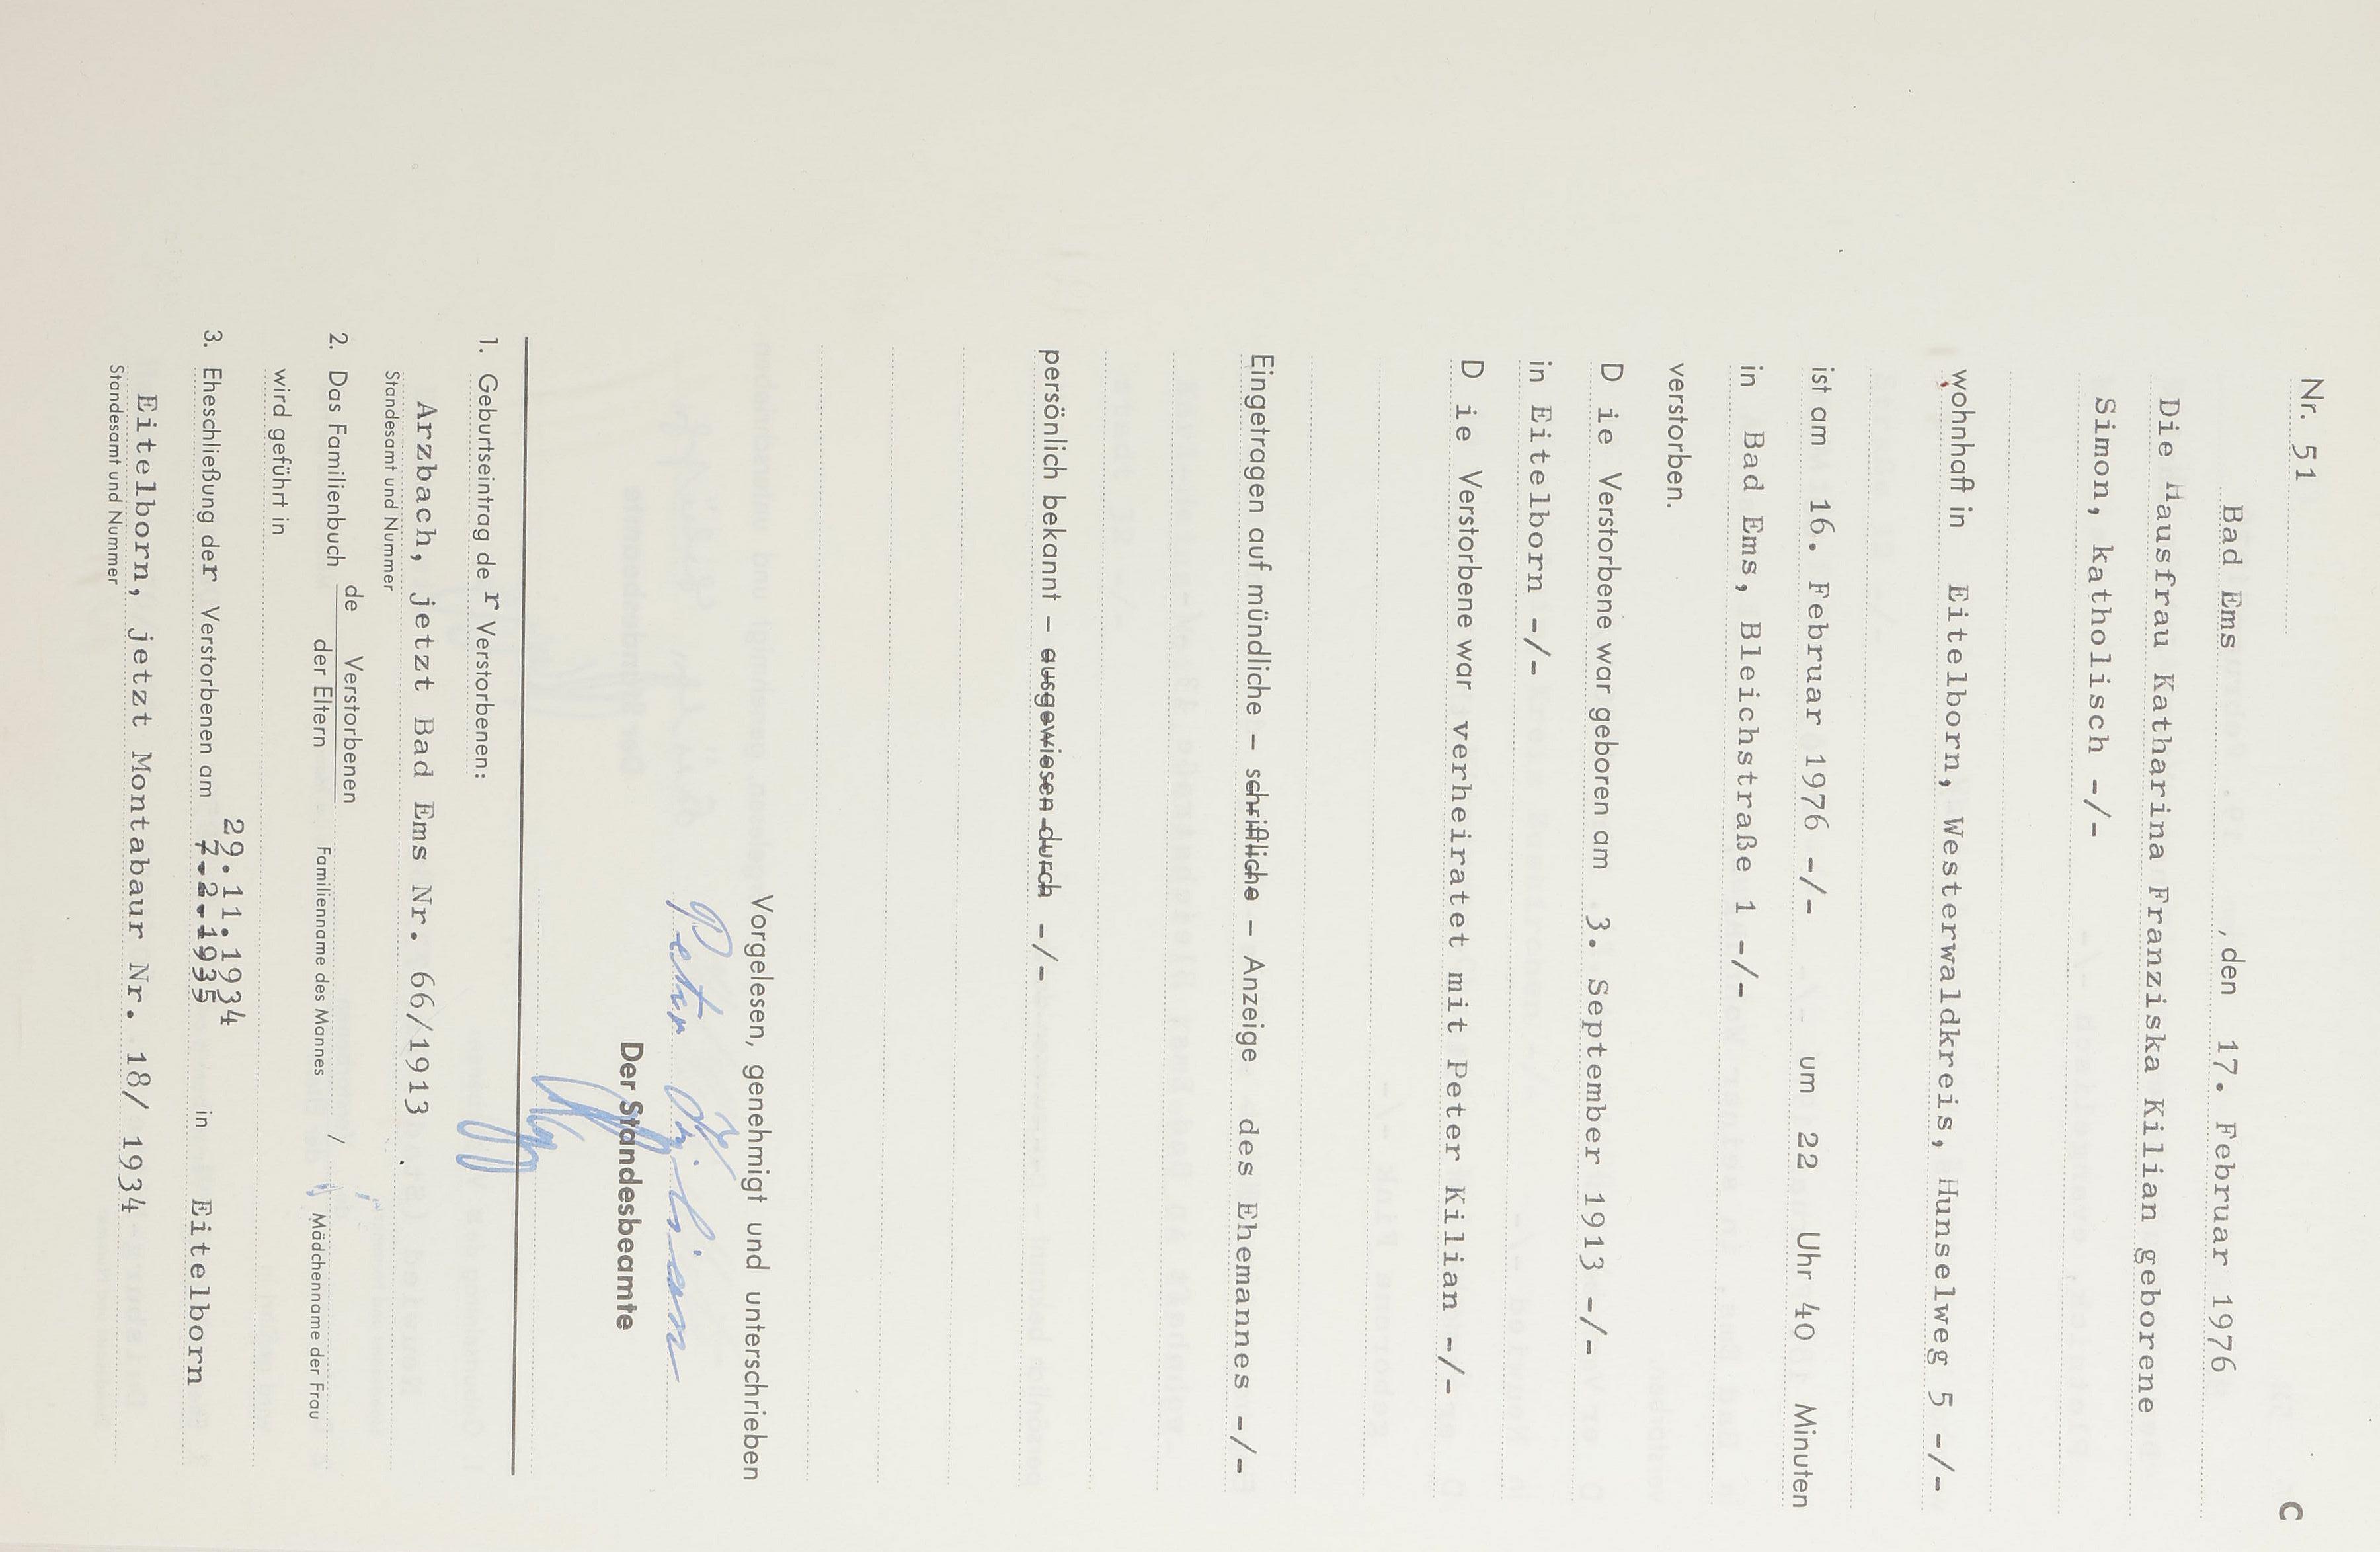 Nr. 51
C
Bad Ems, den 17. Februar 1976
Die Hausfrau Katharina Franziska Kilian geborene
Simon, katholisch -/-
wohnhaft in Eitelborn, Westerwaldkreis, Hunselweg 5 -/-
ist am 16. Februar 1976 -/- um 22 Uhr 40 Minuten
in Bad Ems, Bleichstraße 1 -/-
verstorben.
D ie Verstorbene war geboren am 3. September 1913 -/-
in Eitelborn -/-
D ie Verstorbene war verheiratet mit Peter Kilian -/-
Eingetragen auf mündliche – schriftliche – Anzeige des Ehemannes -/-
persönlich bekannt – ausgewiesen durch -/-
Vorgelesen, genehmigt und unterschrieben
Peter Kilian
Der Standesbeamte
1. Geburtseintrag de r Verstorbenen:
Arzbach, jetzt Bad Ems Nr. 66/1913
Standesamt und Nummer
de Verstorbenen
2. Das Familienbuch
der Eltern
Familienname des Mannes / Mädchenname der Frau
wird geführt in
29.11.1934
3. Eheschließung der Verstorbenen am 7.2.1935 in Eitelborn
Eitelborn, jetzt Montabaur Nr. 18/ 1934
Standesamt und Nummer